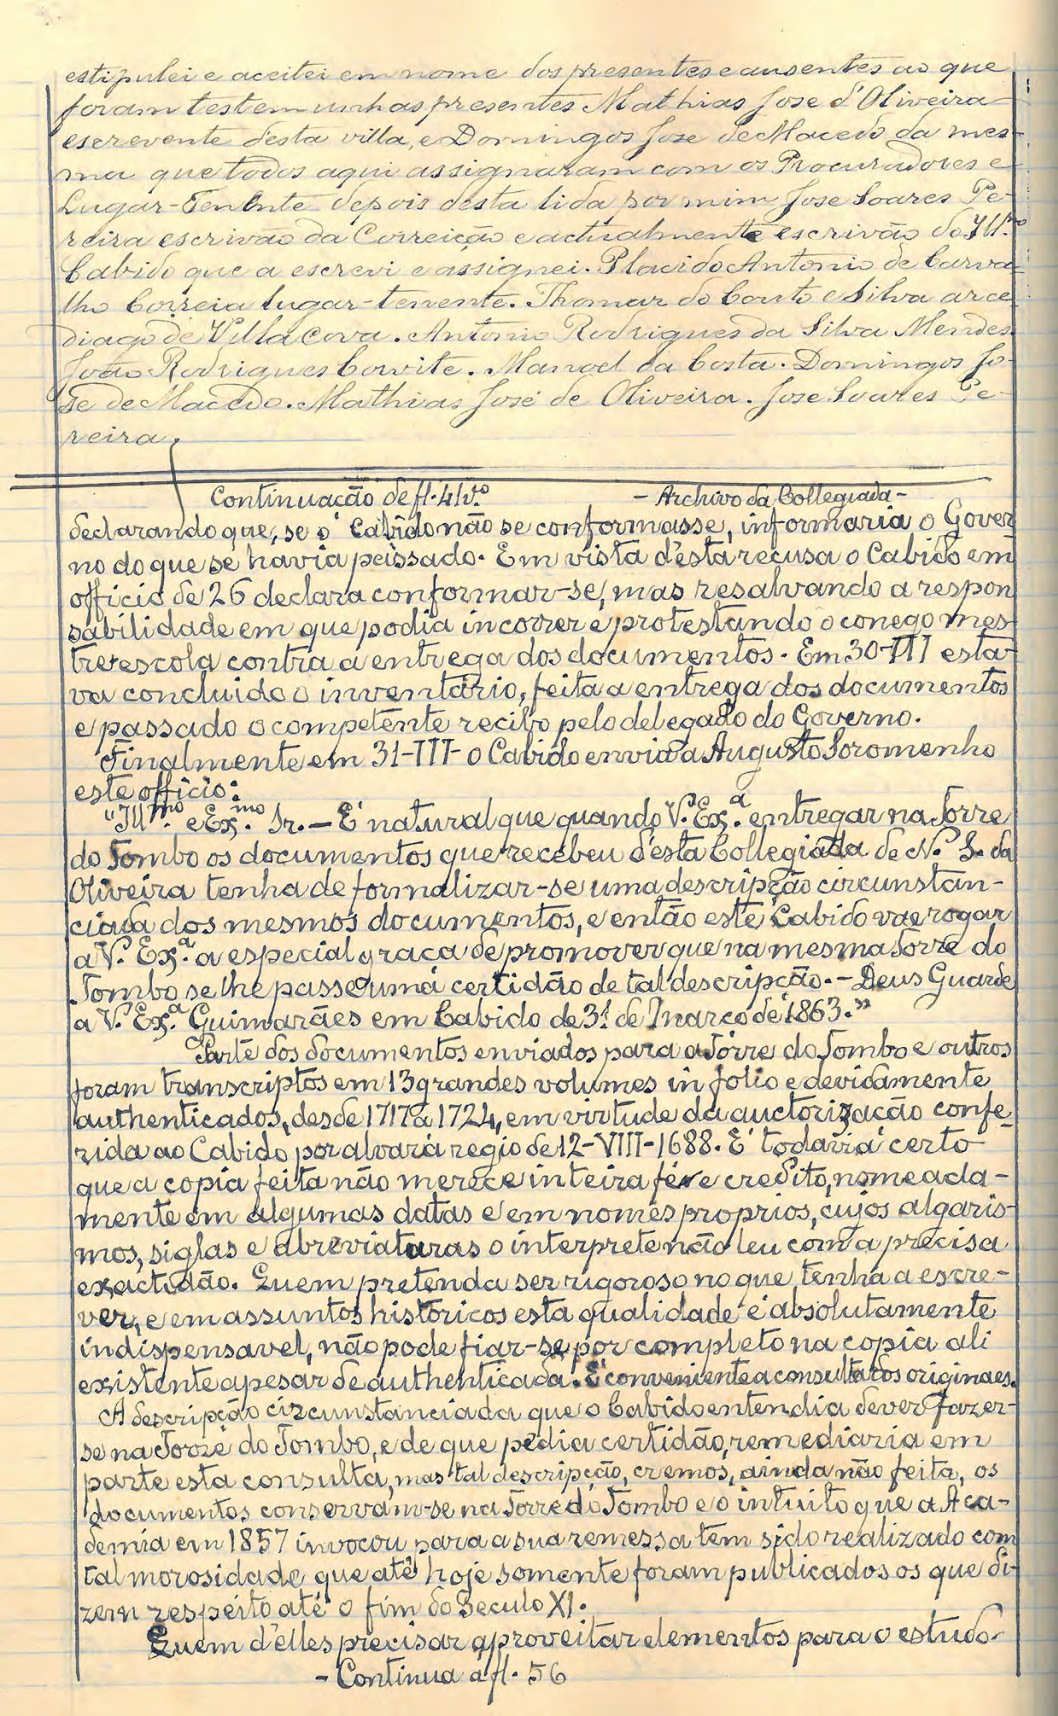 estipulei e aceitei em nome dos presentes e ausentes ao que
foram testemunhas presentes Mathias Jose d'Oliveira
escrevente desta villa, e Domingos Jose de Macedo da mes-
ma que todos aqui assignaram com os Procuradores e
Lugar-Tenente depois desta lida por mim Jose Soares Pe-
reira escrivão da Correição e actualmente escrivão do Ill.mo
Cabido que a escrevi e assignei. Placido Antonio de Carva-
lho Correia lugar-tenente. Thomaz do Couto e Silva arce
diago de Villa Cova. Antonio Rodrigues da Silva Mendes.
João Rodrigues. Manoel da Costa. Domingos Jo-
se de Macedo. Mathias José de Oliveira. Jose Soares Pe-
reira.
Continuação de fl. 41v.º - Archivo da Collegiada -
declarando que, se o Cabido não se conformasse, informaria o Gover
no do que se havia passado. Em vista d'esta recusa o Cabido em
officio de 26 declara conformar-se, mas resalvando a respon
sabilidade em que podia incorrer e protestando o conego mes-
tre-escola contra a entrega dos documentos. Em 30-III esta-
va concluido o inventario, feita a entrega dos documentos
e passado o competente recibo pelo delegado do Governo.
Finalmente em 31-III- o Cabido envia a Augusto Soromenho
este officio:
"Ill.mo e Ex.mo Sr. - E' natural que quando V. Ex.a entregar na Torre
do Tombo os documentos que recebeu d'esta Collegiada de N. S. da
Oliveira tenha de formalizar-se uma descripção circunstan-
ciada dos mesmos documentos, e então este Cabido vae rogar
a V. Ex.a a especial graça de promover que na mesma Torre do
Tombo se lhe passe uma certidão de tal descripção. - Deus Guarde
a V. Ex.a Guimarães em Cabido de 31 de Março de 1863."
Parte dos documentos enviados para a Torre do Tombo e outros
foram transcriptos em 13 grandes volumes in folio e devidamente
authenticados, desde 1717 a 1724, em virtude da auctorização confe-
rida ao Cabido por alvará regio de 12-VIII-1688. E' todavia certo
que a copia feita não merece inteira fé e credito, nomeada-
mente em algumas datas e em nomes proprios, cujos algaris-
mos, siglas e abreviaturas o interprete não leu com a precisa
exactidão. Quem pretenda ser rigoroso no que tenha a escre-
ver, e em assuntos historicos esta qualidade é absolutamente
indispensavel, não pode fiar-se por completo na copia ali
existente apesar de authenticada. E' conveniente a consulta dos originaes.
A descripção circunstanciada que o Cabido entendia dever fazer-
se na Torre do Tombo, e de que pedia certidão, remediaria em
parte esta consulta, mas tal descripção, cremos, ainda não feita, os
documentos conservam-se na Torre do Tombo e o intuito que a Aca-
demia em 1857 invocou para a sua remessa tem sido realizado com
tal morosidade que até hoje somente foram publicados os que di-
zem respeito até o fim do Seculo XI.
Quem d'elles precisar aproveitar elementos para o estudo
- Continua a fl. 56